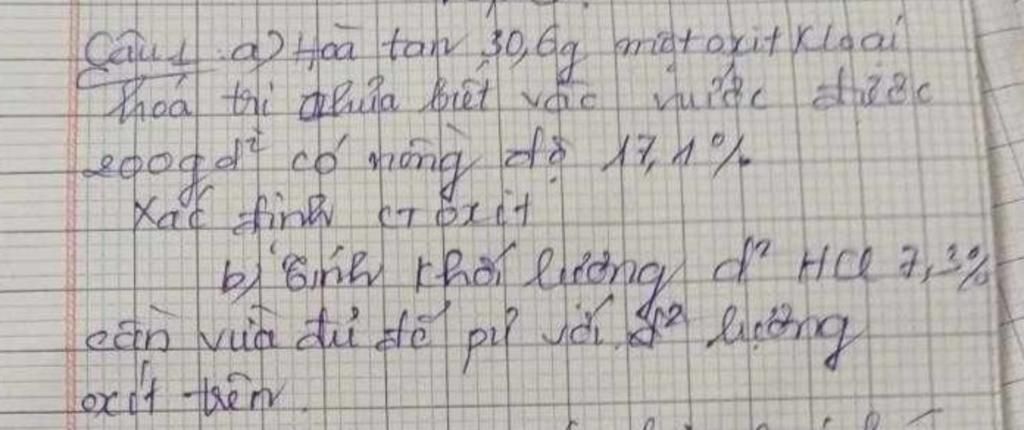 Câu 1 a) Hoà tan 30,6g một oxit K loại
hoá trị chưa biết vào nước được
200g d² có nồng độ 17,1%
Xác định CT oxit
b) Tính khối lượng d² HCl 7,3%
cần vừa đủ để pứ với d² lượng
oxit trên.